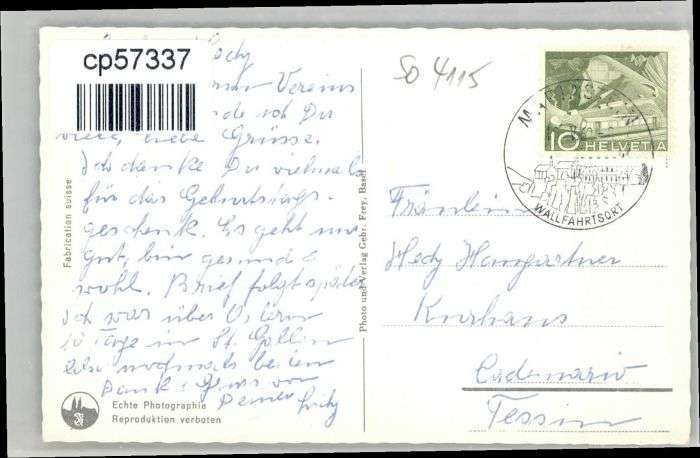 cp57337
Hedy
Vereins
de ich Dir
viele, liebe Grüsse.
Ich danke Dir vielmals
für das Geburtstags-
geschenk. Es geht mir
gut, bin gesund &
wohl. Brief folgt später
Ich war über Ostern
10 Tage in St. Gallen
Also nochmals besten
Dank & Gruss von
Deinem Fritz
Echte Photographie
Reproduktion verboten
Fabrication suisse
Photo und Verlag Gebr. Frey, Basel
SO 4115
10 HELVETIA
WALLFAHRTSORT
Fräulein
Hedy Homgartner
Kurhaus
Cademario
Tessin